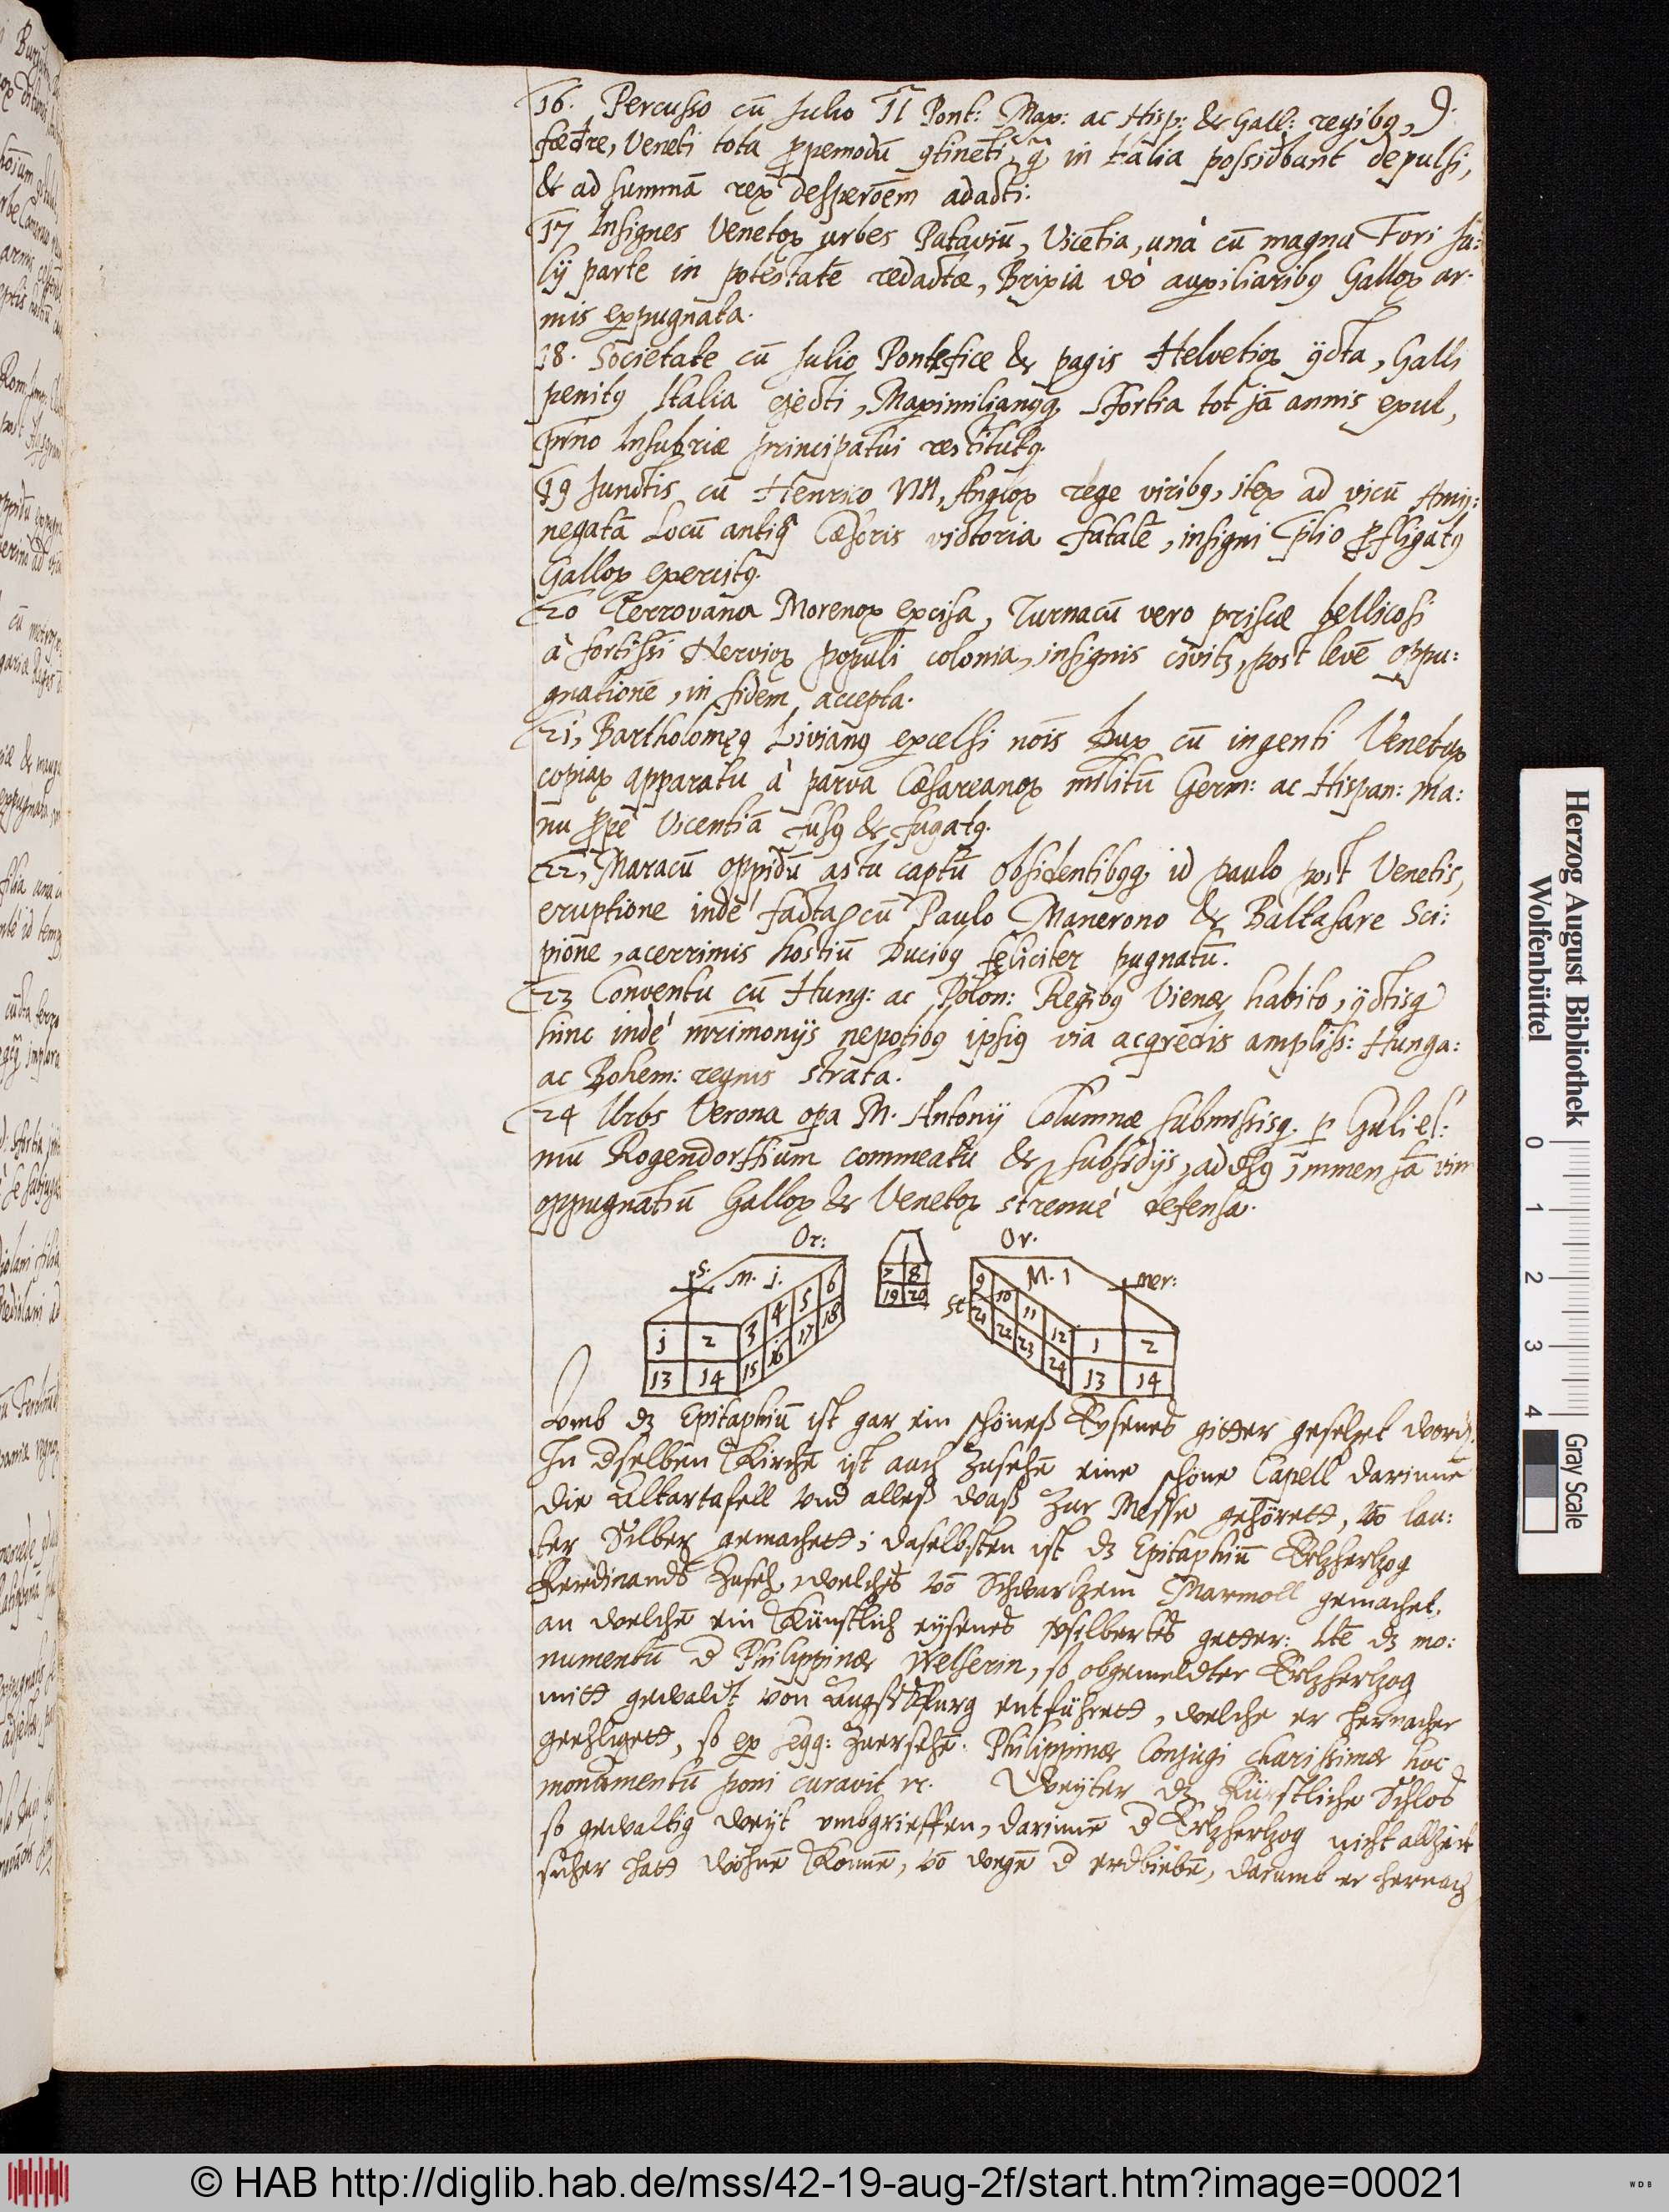 9.
16. Percusso cū Julio II Pont: Max: ac Hisp: & Gall: regibꝯ,
fœdre, Veneti tota ꝓpemodū ꝯtinēti, q̄ in Italia possidbant depulsi,
& ad summā reꝝ desperōem adacti:
17 Insignes Venetoꝝ urbes Pataviū, Vicētia, unà cū magna Fori Ju:
lij parte in potestatē redactæ, Brixia vō auxiliaribꝯ Galloꝝ ar:
mis expugnata.
18. Societate cū Julio Pontefice & pagis Helvetioꝝ ictā, Galli
penitꝯ Italia ejecti, Maximilianꝯqꝫ Sfortia tot jā annis exul,
Insubriæ principatui restitutꝯ.
19 Junctis cū Henrico VIII, Angloꝝ rege viribꝯ, iteꝝ ad vicū
negatā Locū Cæsaris victoria fatalē, insigni p̄lio ꝓfligatꝯ
Galloꝝ exercitꝯ.
20 Terrovana Morenoꝝ excisa, Turnacū vero priscæ bellicosi
à fortissi Nervioꝝ populi colonia, insignis civitꝫ, post levē oppu:
gnationē, in fidem accepta.
21, Bartholomęꝯ Livianꝯ excelsi nōis Dux cū ingenti Venetoꝝ
copiaꝝ apparatu à parva Cæsareanoꝝ militū Germ: ac Hispan: ma:
nu ꝓpè Vicentiā fusꝯ & fugatꝯ.
22, Maracū oppidū astu captū Obsidentibꝯqꝫ id paulo post Venetis,
eruptione indè facta, cū Paulo Manerono & Baltasare Sci:
pione, acerrimis hostiū Ducibꝯ feliciter pugnatū.
23 Conventu cū Hung: ac Polon: Regibꝯ Vienæ habito, ictisqꝫ
hinc indè mr̄imonijs nepotibꝯ ipsiꝯ via ampliss: Hunga:
ac Bohem: regnis strata.
24 Urbs Verona opa M. Antonij Columnæ submissisqꝫ ꝑ Guliel:
mū Rogendorffium commeatu & subsidijs, adversꝯ immensā vim
oppugnātiū Galloꝝ & Venetoꝝ strenuè defensa.
Or: Or.
S. M. j. 1 M. 1 mer:
6 7 8 9
5 19 20 10
4 18 St 21 11
j 2 3 17 22 12 1 2
13 14 15 16 23 24 13 14
Umb dz Epitaphiū ist gar ein schöneß Eysenes gitter gesetzet word.
In dselben Kirchē ist auch Zusehē eine schöne Capell darinnē
die Altartafell und alleß waß Zur Messe gehörett, vō lau:
ter Silber gemachett; daselbsten ist dz Epitaphiū Ertzhertzog
Ferdinands Zuseh, welches vō Schwartzem Marmoll gemachet,
an welchē ein Künstlich eysenes vsilbertes getter: Itē dz mo:
numentū d Philippinæ Welserin, so obgemeldter Ertzhertzog
mitt gewaldt von Augspurg entführett, welche er hernacher
geehligett, so ex seqq: Zuersehē. Philippinæ Conjugi charissimæ hoc
monumentū poni curavit ꝛc. Weyter dz Fürstliche Schlos
so gewaltig weyt umbgrieffen, darinnē d Ertzhertzog nicht allzeit
sicher hatt wohnē Konnē, vō wegē d erdbiebē, darumb er hernach
Herzog August Bibliothek
Wolfenbüttel
0 1 2 3 4
Gray Scale
© HAB http://diglib.hab.de/mss/42-19-aug-2f/start.htm?image=00021
WDB